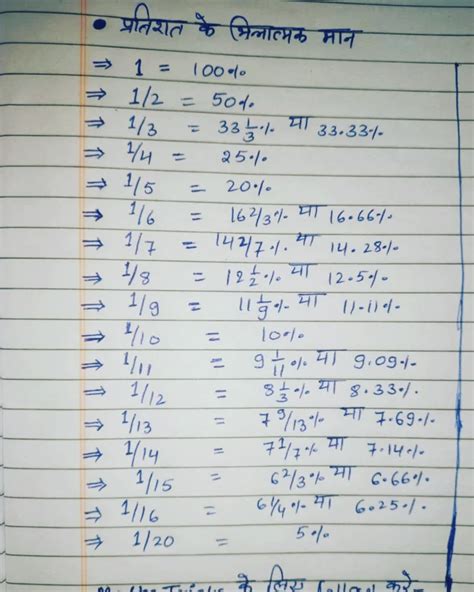 • प्रतिशत के भिन्नात्मक मान
⇒ 1 = 100%
⇒ 1/2 = 50%
⇒ 1/3 = 33 1/3% या 33.33%
⇒ 1/4 = 25%
⇒ 1/5 = 20%
⇒ 1/6 = 16 2/3% या 16.66%
⇒ 1/7 = 14 2/7% या 14.28%
⇒ 1/8 = 12 1/2% या 12.5%
⇒ 1/9 = 11 1/9% या 11.11%
⇒ 1/10 = 10%
⇒ 1/11 = 9 1/11% या 9.09%
⇒ 1/12 = 8 1/3% या 8.33%
⇒ 1/13 = 7 9/13% या 7.69%
⇒ 1/14 = 7 1/7% या 7.14%
⇒ 1/15 = 6 2/3% या 6.66%
⇒ 1/16 = 6 1/4% या 6.25%
⇒ 1/20 = 5%
के लिए करे-